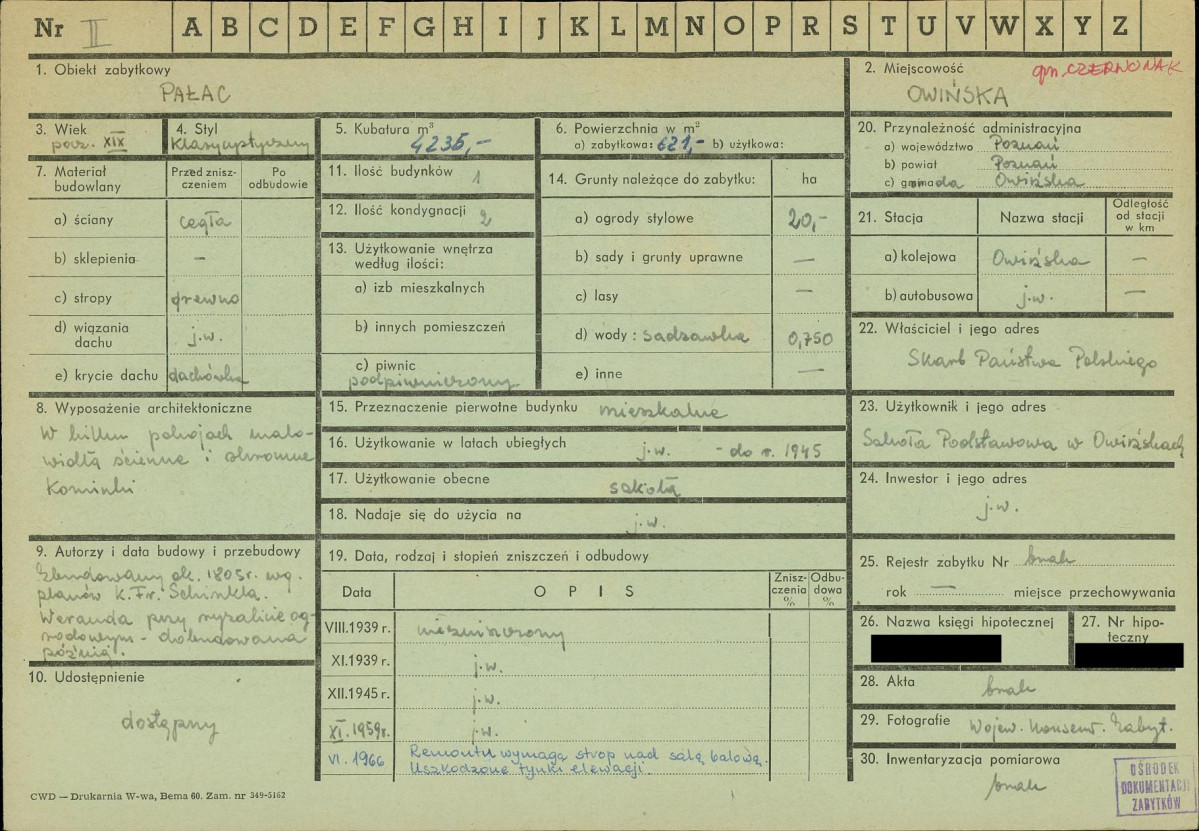 Nr II A B C D E F G H I J K L M N O P R S T U V W X Y Z
1. Obiekt zabytkowy
PAŁAC
2. Miejscowość
gm. CZERWONAK
OWIŃSKA
3. Wiek
pocz. XIX
4. Styl
Klasycystyczny
5. Kubatura m³
4235,-
6. Powierzchnia w m²
a) zabytkowa: 621,- b) użytkowa:
20. Przynależność administracyjna
a) województwo Poznań
b) powiat Poznań
c) gromada Owińska
7. Materiał budowlany
Przed znisz-
czeniem
Po
odbudowie
a) ściany cegła
b) sklepienia –
c) stropy drewno
d) wiązania
dachu j.w.
e) krycie dachu dachówka
11. Ilość budynków 1
12. Ilość kondygnacji 2
13. Użytkowanie wnętrza
według ilości:
a) izb mieszkalnych
b) innych pomieszczeń
c) piwnic
podpiwniczony
14. Grunty należące do zabytku: ha
a) ogrody stylowe 20,-
b) sady i grunty uprawne —
c) lasy —
d) wody: sadzawka 0,750
e) inne —
21. Stacja Nazwa stacji
Odległość
od stacji
w km
a) kolejowa Owińska —
b) autobusowa j.w. —
22. Właściciel i jego adres
Skarb Państwa Polskiego
8. Wyposażenie architektoniczne
W kilku pokojach malo-
widła ścienne i skromne
Kominki
15. Przeznaczenie pierwotne budynku mieszkalne
16. Użytkowanie w latach ubiegłych j.w. - do r. 1945
17. Użytkowanie obecne szkoła
18. Nadaje się do użycia na j.w.
23. Użytkownik i jego adres
Szkoła Podstawowa w Owińskach
24. Inwestor i jego adres
j.w.
9. Autorzy i data budowy i przebudowy
Zbudowany ok. 1805r. wg.
planów K. Fr. Schinkla.
Weranda przy ryzalicie og-
rodowym - dobudowana
później.
10. Udostępnienie
dostępny
19. Data, rodzaj i stopień zniszczeń i odbudowy
Data OPIS
Znisz-
czenia
%
Odbu-
dowa
%
VIII.1939 r. niezniszczony
XI.1939 r. j.w.
XII.1945 r. j.w.
XI.1959r. j.w.
VI. 1966 Remontu wymaga strop nad salą balową.
Uszkodzone tynki elewacji.
25. Rejestr zabytku Nr brak
rok — miejsce przechowywania
26. Nazwa księgi hipotecznej
27. Nr hipo-
teczny
28. Akta brak
29. Fotografie Wojew. Konserw. Zabyt.
30. Inwentaryzacja pomiarowa
brak
OŚRODEK
DOKUMENTACJI
ZABYTKÓW
CWD — Drukarnia W-wa, Bema 60. Zam. nr 349-5162